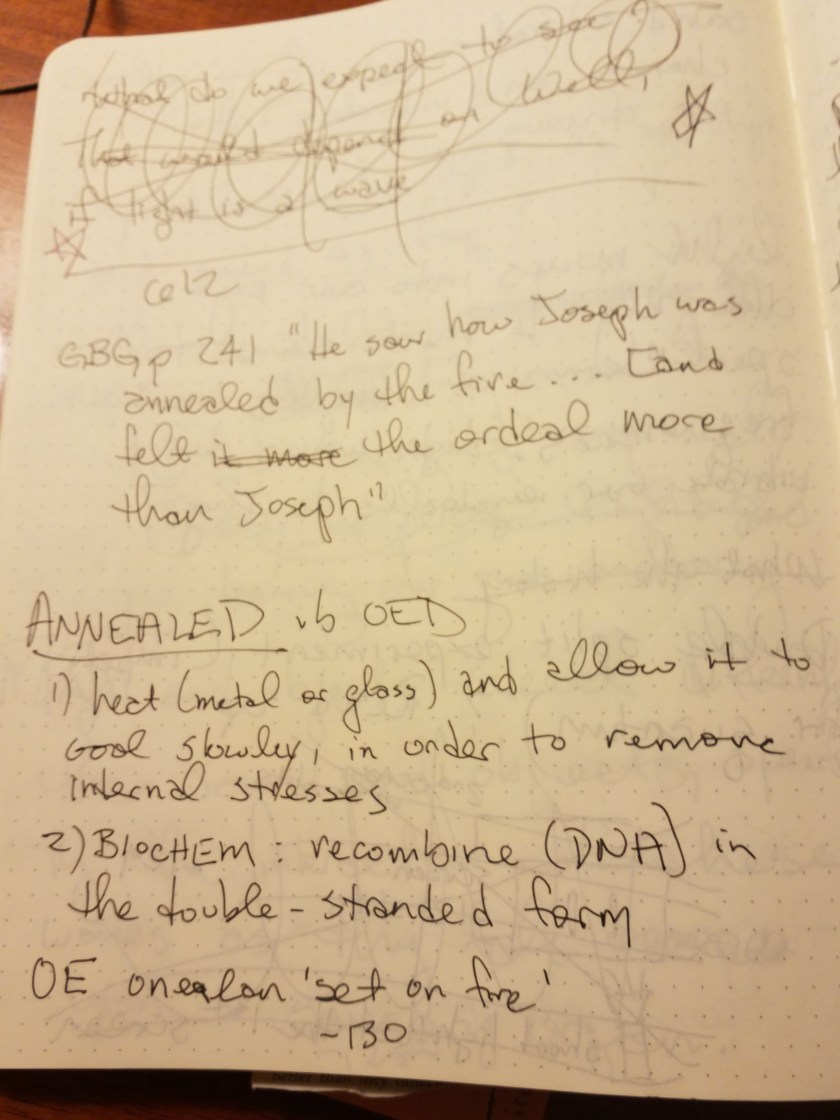 what do we expect to see?
Well,
that would depend on
if light is a wave
GBG p 241 "He saw how Joseph was
annealed by the fire... [and
felt it more the ordeal more
than Joseph"
ANNEALED vb OED
1) heat (metal or glass) and allow it to
cool slowley, in order to remove
internal stresses
2) BIOCHEM: recombine (DNA) in
the double-stranded form
OE onealan 'set on fire'